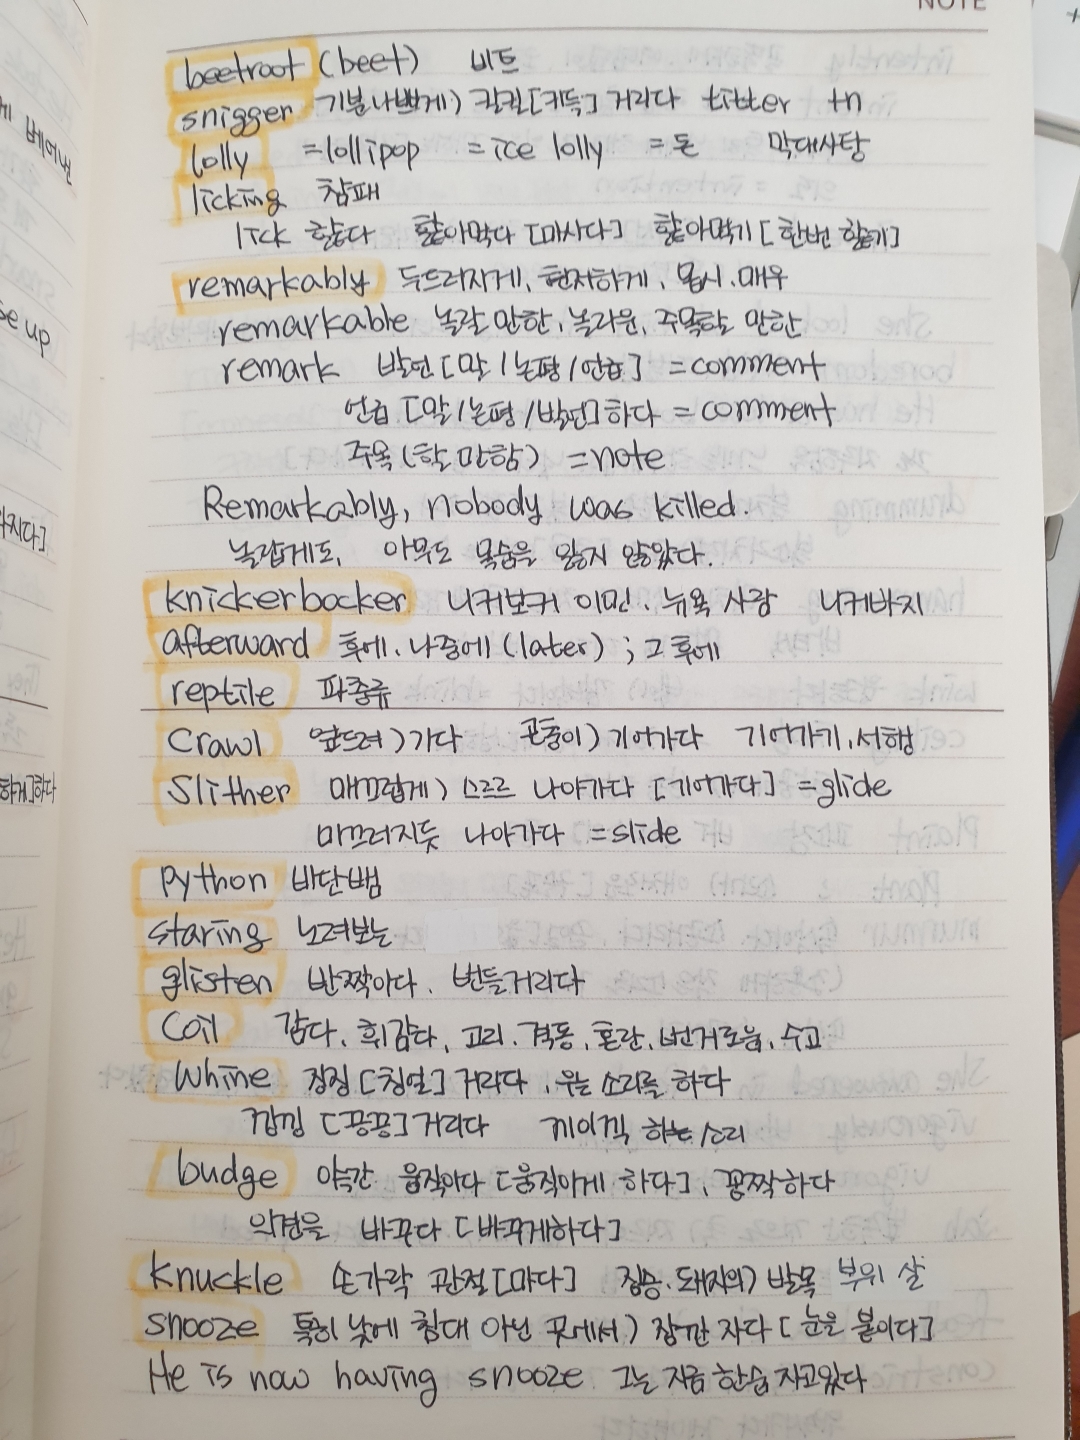 NOTE
beetroot (beet) 비트
snigger 기분나쁘게) 킬킬[키득] 거리다 titter +n
lolly =lollipop =ice lolly =돈 막대사탕
licking 참패
lick 핥다 핥아먹다 [마시다] 핥아먹기 [한번 핥기]
remarkably 두드러지게, 현저하게, 몹시. 매우
remarkable 놀랄 만한, 놀라운, 주목할 만한
remark 발언 [말/논평/언급] =comment
언급 [말/논평/발언]하다 =comment
주목(할 만함) =note
Remarkably, nobody was killed.
놀랍게도, 아무도 목숨을 잃지 않았다.
knickerbocker 니커보커 이민. 뉴욕 사람 니커바지
afterward 후에. 나중에(later) ; 그 후에
reptile 파충류
crawl 엎드려) 가다 곤충이) 기어가다 기어가기, 서행
slither 매끄럽게) 스르르 나아가다 [기어가다] =glide
미끄러지듯 나아가다 =slide
python 비단뱀
staring 노려보는
glisten 반짝이다. 번들거리다
coil 감다, 휘감다, 고리. 격동, 혼란, 번거로움, 수고
whine 징징 [칭얼] 거리다, 우는 소리를 하다
낑낑 [끙끙]거리다 끼이끽 하는 소리
budge 약간 움직이다 [움직이게 하다], 꿈쩍하다
의견을 바꾸다 [바꾸게하다]
knuckle 손가락 관절[마디] 짐승. 돼지의) 발목 부위 살
snooze 특히 낮에 침대 아닌 곳에서) 잠깐 자다 [눈을 붙이다]
He is now having snooze 그는 지금 한숨 자고있다
게 베어낸
se up
하게]하다